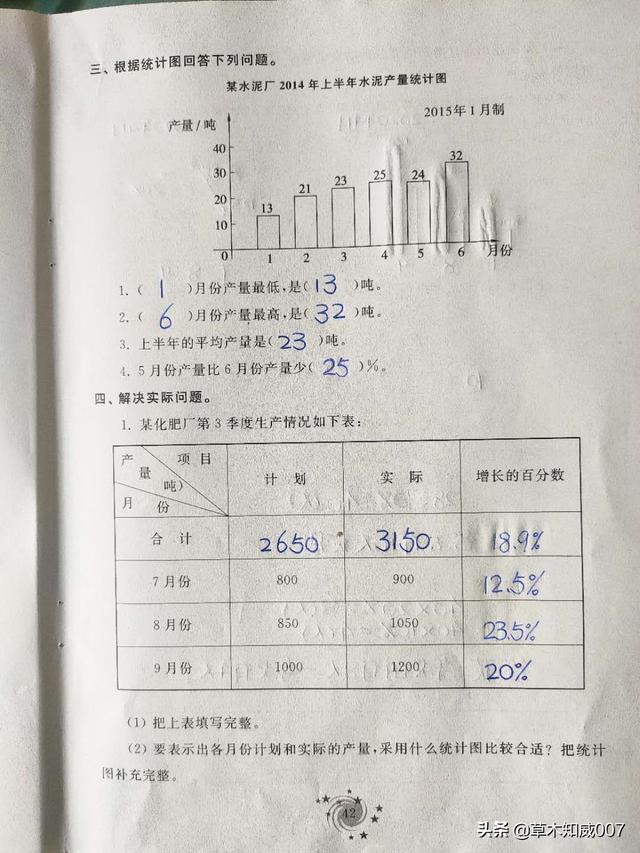 三、根据统计图回答下列问题。
某水泥厂2014年上半年水泥产量统计图
2015年1月制
产量/吨
40
30
20
10
0
13
21
23
25
24
32
1 2 3 4 5 6 月份
1.( 1 )月份产量最低,是( 13 )吨。
2.( 6 )月份产量最高,是( 32 )吨。
3. 上半年的平均产量是( 23 )吨。
4. 5月份产量比6月份产量少( 25 )%。
四、解决实际问题。
1. 某化肥厂第3季度生产情况如下表:
产量 吨) 项目 月份 计划 实际 增长的百分数
合计 2650 3150 18.9%
7月份 800 900 12.5%
8月份 850 1050 23.5%
9月份 1000 1200 20%
(1) 把上表填写完整。
(2) 要表示出各月份计划和实际的产量,采用什么统计图比较合适?把统计
图补充完整。
42
头条 @草木知威007